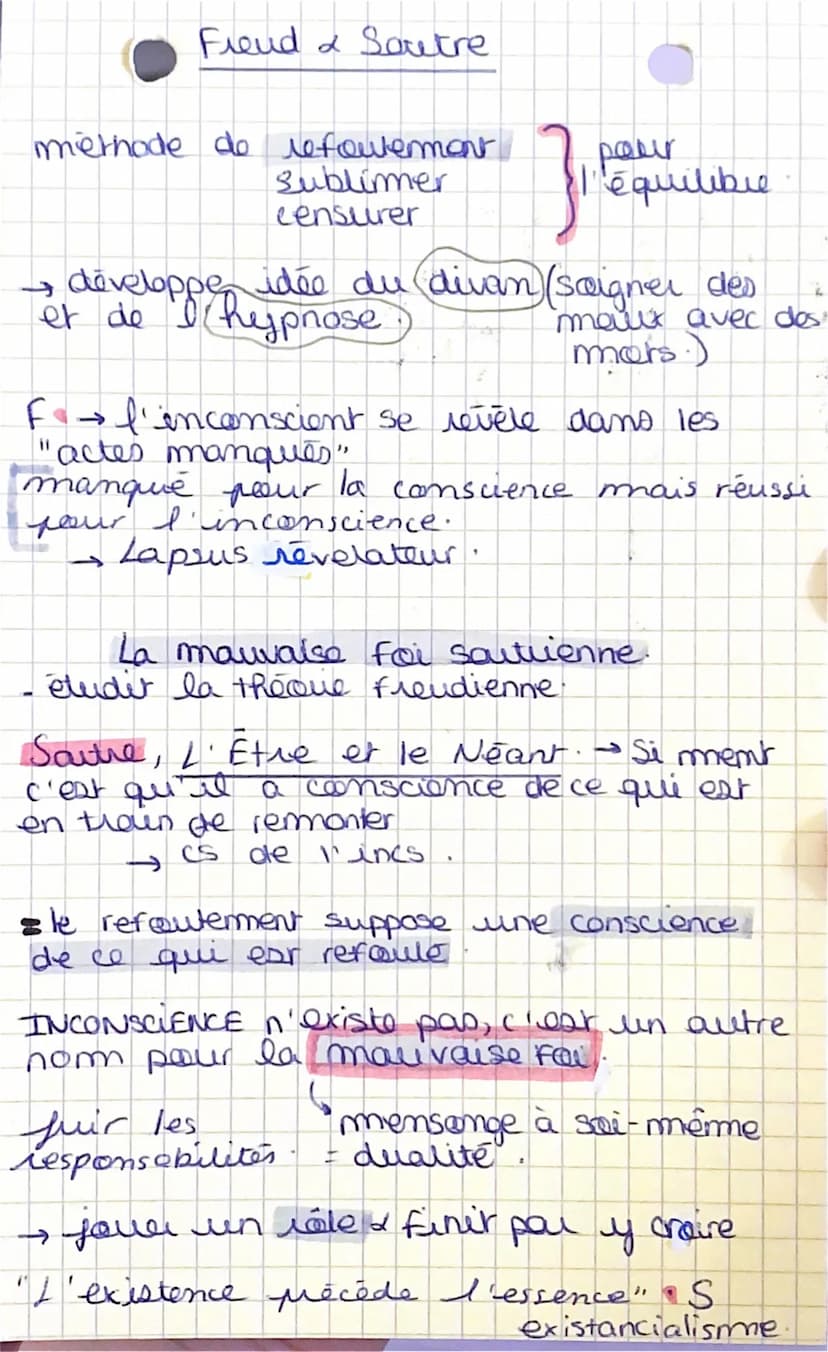 Freud & Sartre
méthode de refoulement
sublimer
censurer
} pour
l'équilibre
→ développe idée du divan (soigner des
et de l'hypnose.
maux avec des
mots.)
F • → l'inconscient se révèle dans les
"actes manqués"
manqué pour la conscience mais réussi
pour l'inconscience.
→ Lapsus révélateur.
La mauvaise foi sartrienne.
- étudir la théorie freudienne.
Sartre, L'Être et le Néant. → Si ment
c'est qu'il a conscience de ce qui est
en train de remonter
→ cs de l'incs.
= le refoulement suppose une conscience
de ce qui est refoulé.
INCONSCIENCE n'existe pas, c'est un autre
nom pour la mauvaise foi.
fuir les
responsabilités.
mensonge à soi-même
= dualité.
→ jouer un rôle & finir par y croire
"L'existence précède l'essence" • S
existancialisme.